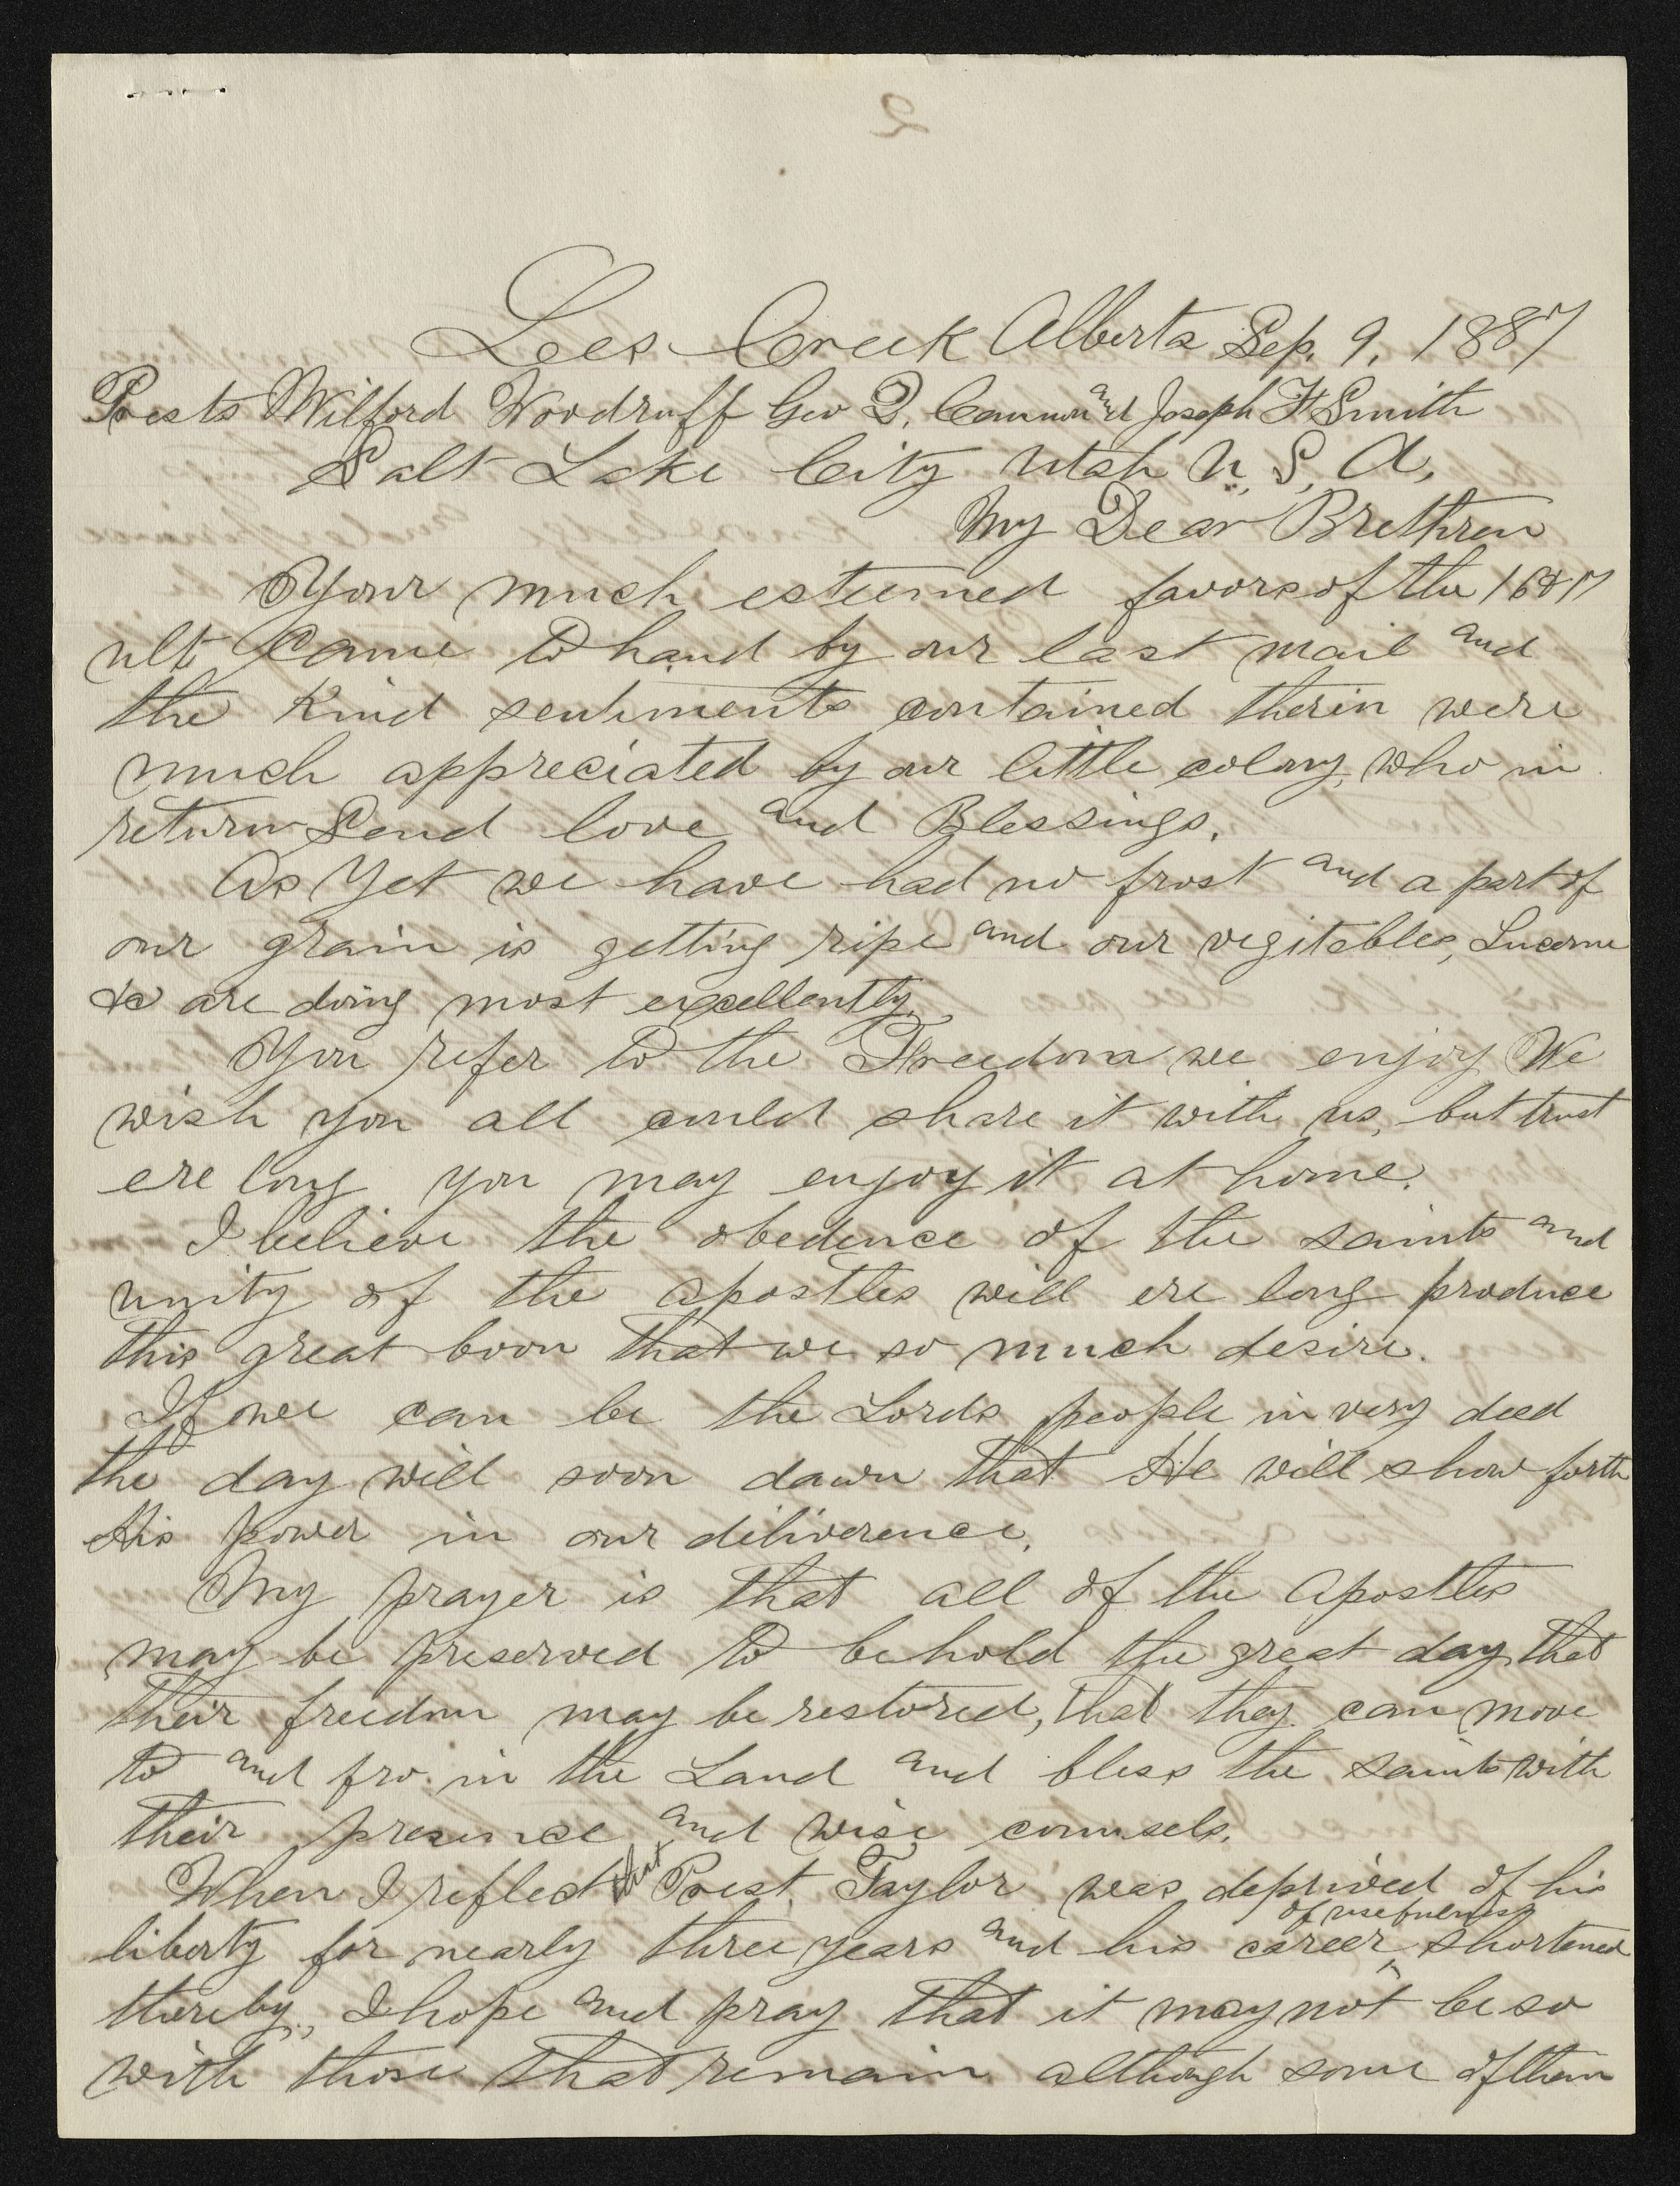 2
Lees Creek Alberta Sep. 9, 1887
Prests Wilford Woodruff Geo Q. Cannon and Joseph F Smith
Salt Lake City Utah U. S. A.
My Dear Brethren
Your much esteemed favors of the 16 & 17
ult came to hand by our last mail and
the kind sentiments contained therin were
much appreciated by our little colony, who in
return Send love and Blessings.
As Yet we have had no frost and a part of
our grain is getting ripe and our vegitables, Lucerne
&c are doing most excellently.
You refer to the Freedom we enjoy We
wish you all could share it with us, but trust
ere long you may enjoy it at home.
I believe the obedence of the saints and
unity of the apostles will ere long produce
this great boon that we so much desire.
If we can be the Lords people in very deed
the day will soon dawn that He will show forth
His power in our deliverence.
My prayer is that all of the Apostles
may be preserved to behold the great day, that
their freedom may be restored, that they can move
to and fro in the Land and bless the saints with
their presence and wise counsels.
When I reflect that Prest. Taylor was deprived of his
liberty for nearly three years and his career of usefulness shortened
thereby, I hope and pray that it may not be so
with those that remain although some of them